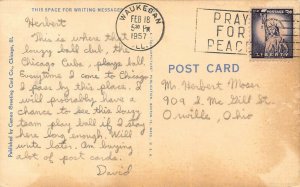 THIS SPACE FOR WRITING MESSAGES
Herbert
This is where that
louzy ball club, the
Chicago Cubs, plays ball.
Everytime I come to Chicago
I pass by this place. I
will probably have a
chance to see this louzy
team play ball if I stay
here long enough. Will
write later. Am buying
alot of post cards.
David
Published by Cameo Greeting Card Co., Chicago, Ill.
WAUKEGAN
FEB 18
5:30 PM
1957
ILL.
PRAY
FOR
PEACE
LIBERTY
POST CARD
Mr. Herbert Moser
909 S. Mc Gill St.
Orrville, Ohio